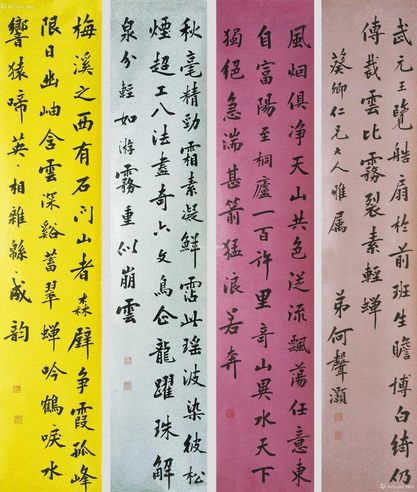 武元王覽皓扇於前班生瞻博白綺仍
傳裁雲比霧裂素輕蟬
葵卿仁兄大人雅属 弟何聲灝
風烟俱净天山共色從流飄蕩任意東
自富陽至桐廬一百許里奇山異水天下
獨絕急湍甚箭猛浪若奔
秋毫精勁霜素凝鮮霑此瑤波染彼松
煙超工八法盡奇六文鳥企龍躍珠解
泉分輕如游霧重似崩雲
梅溪之西有石門山者森壁爭霞孤峰
限日幽岫含雲深谿蓄翠蟬吟鶴唳水
響猿啼英〻相雜緜〻成韵